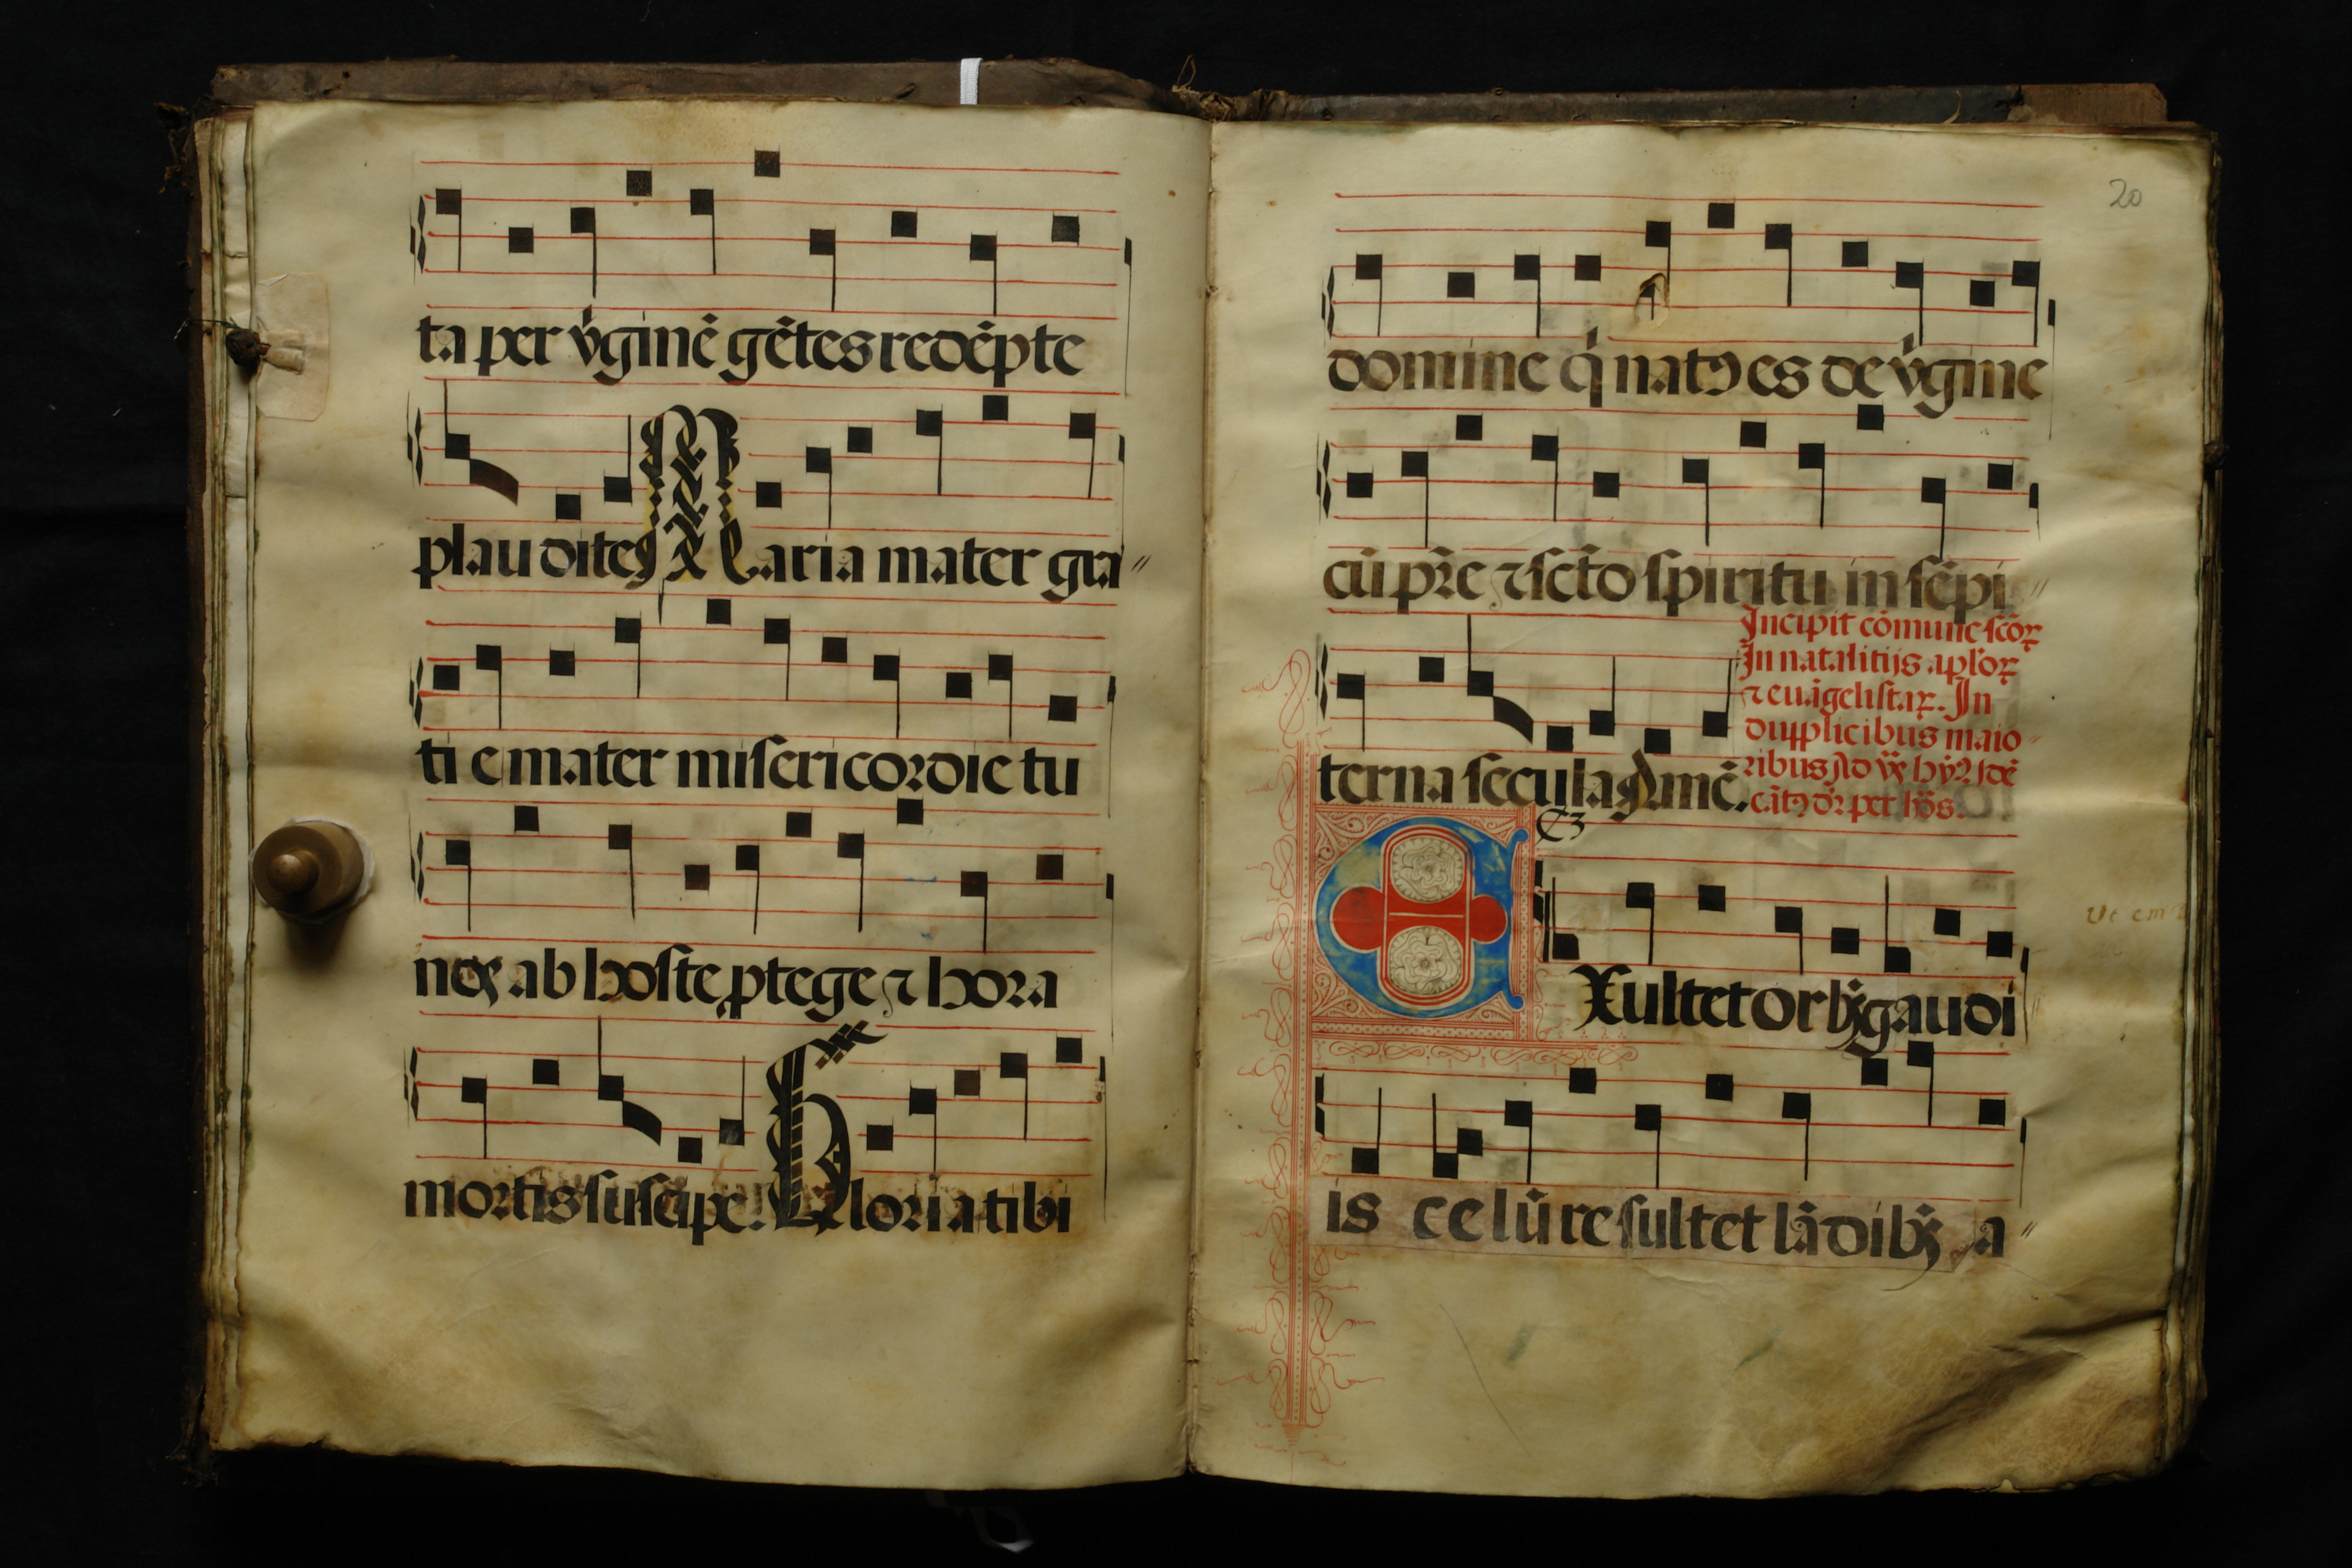 ta per v̇ginē gētes redēpte
plaudite; Maria mater gra〃
tie mater misericordie tu
noꝫ ab hoste ꝓtege ⁊ hora
mortis suscipe. Gloria tibi
20
domine q̇ natꝰ es de v̇gine
cū pr̄e ⁊ sct̄o spiritu in sēpi〃
Incipit cōmune scōꝝ
In natalitijs apl'oꝝ
⁊ euāgelistaꝝ. In
dupplicibus maio
terna secula Amē.
ribus Ad
cāt᷒ dr̄ per hōs.
EXultet orbꝫ gaudi
is celū resultet lādibꝫ a〃